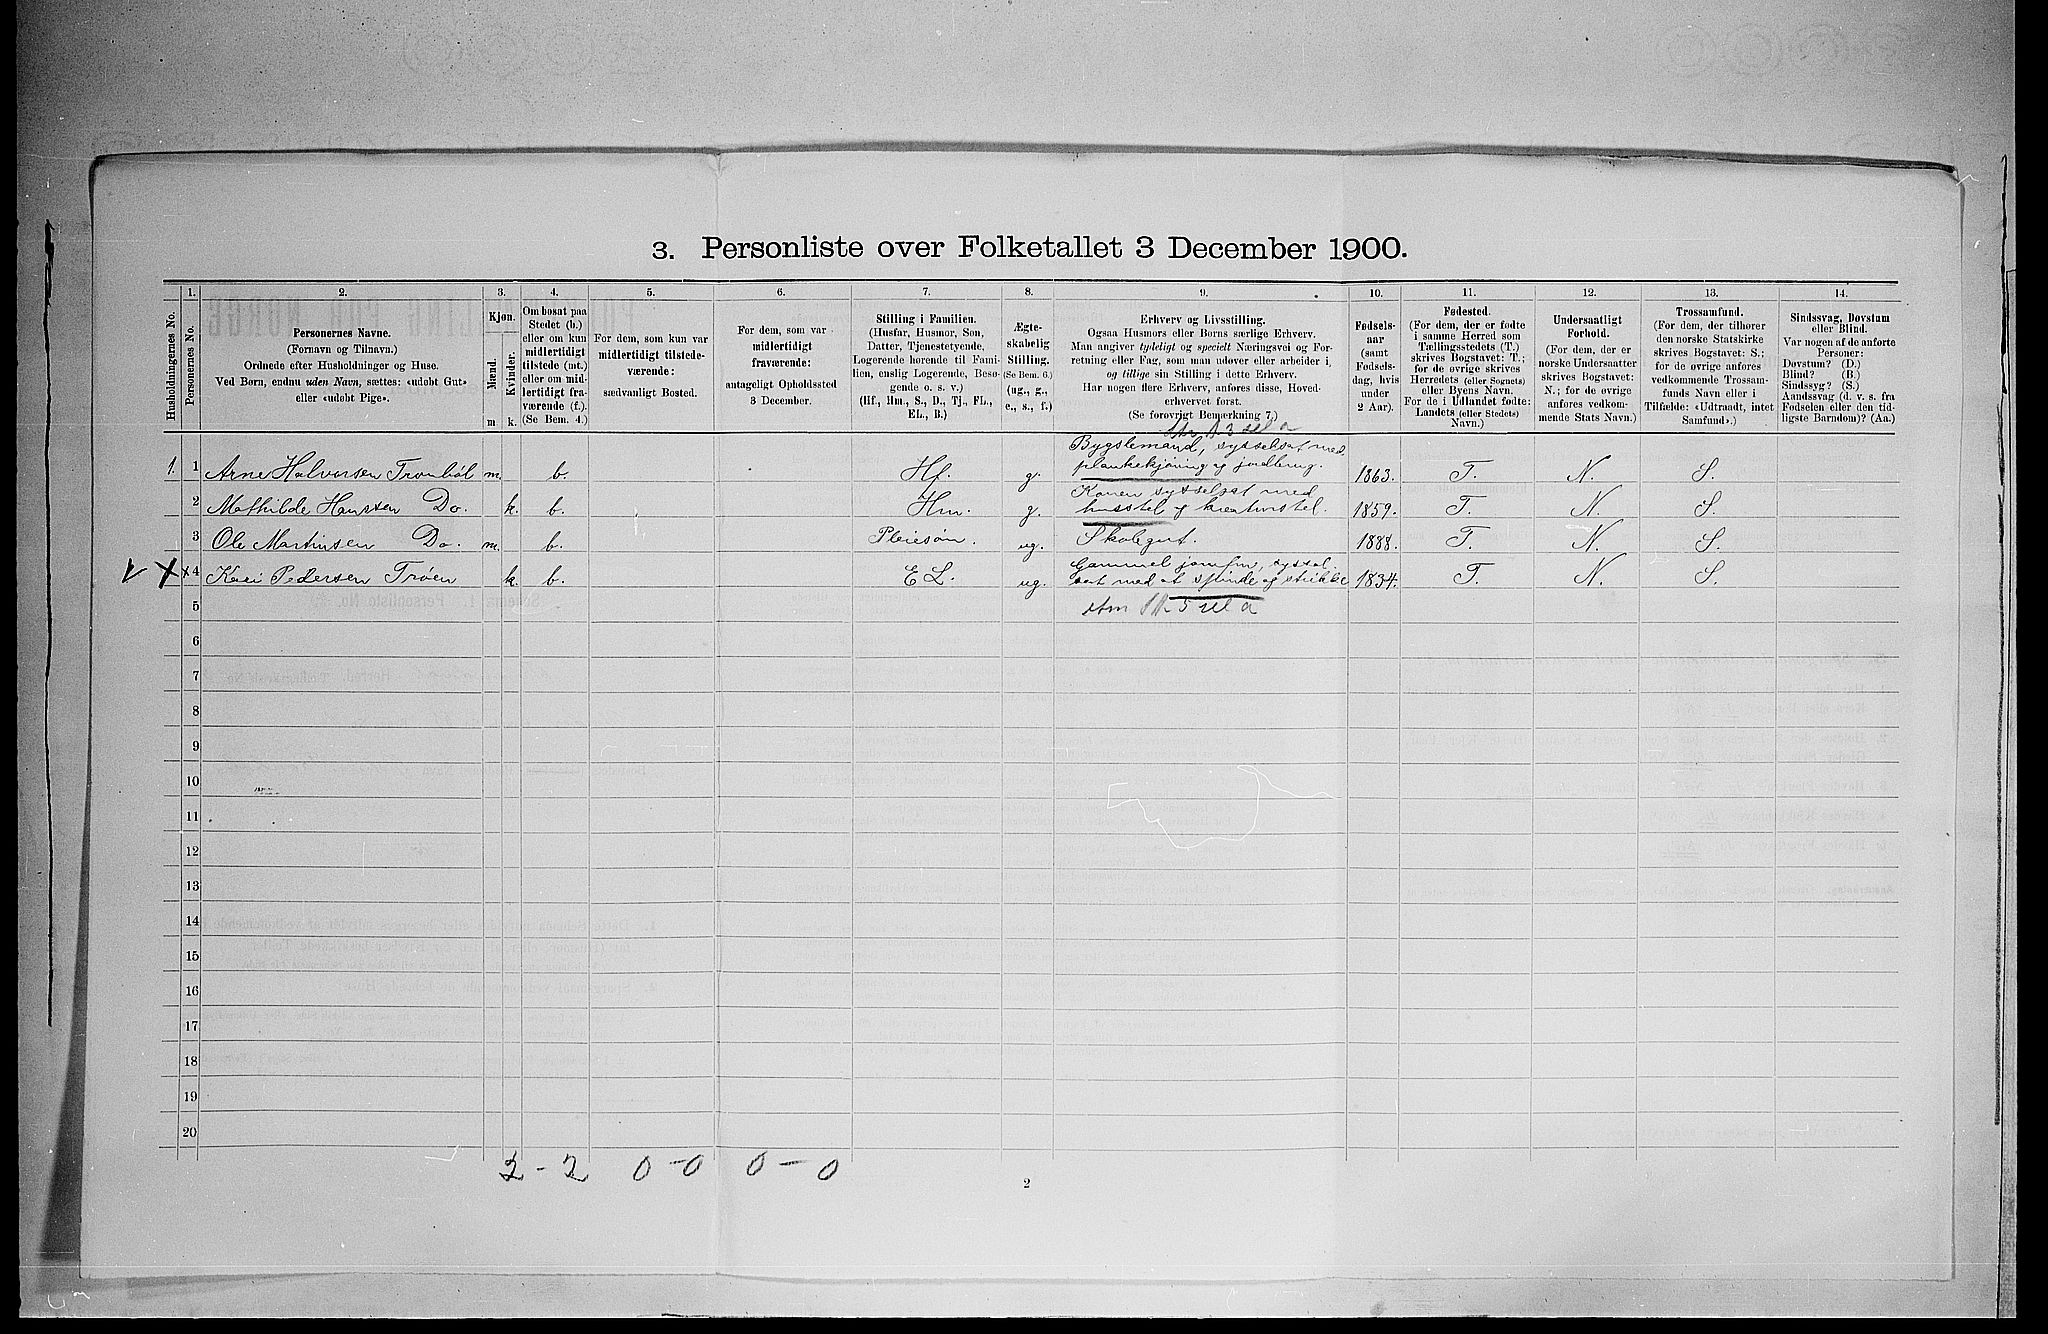 3. Personliste over Folketallet 3 December 1900.
1. 2. 3. 4. 5. 6. 7. 8. 9. 10. 11. 12. 13. 14.
Husholdningernes No.
Personernes No.
Personernes Navne.
(Fornavn og Tilnavn.)
Ordnede efter Husholdninger og Huse.
Ved Børn, endnu uden Navn, sættes: «udøbt Gut»
eller «udøbt Pige».
Kjøn.
Mænd.
Kvinder.
m k.
Om bosat paa
Stedet (b.)
eller om kun
midlertidigt
tilstede (mt.)
eller om mid-
lertidigt fra-
værende (f.).
(Se Bem. 4.)
For dem, som kun var
midlertidigt tilstede-
værende:
sædvanligt Bosted.
For dem, som var
midlertidigt
fraværende:
antageligt Opholdssted
3 December.
Stilling i Familien.
(Husfar, Husmor, Søn,
Datter, Tjenestetyende,
Logerende hørende til Fami-
lien, enslig Logerende, Besø-
gende o. s. v.)
(Hf., Hm., S., D., Tj., FL.,
EL., B.)
Ægte-
skabelig
Stilling.
(Se Bem. 6.)
(ug., g.,
e., s., f.)
Erhverv og Livsstilling.
Ogsaa Husmors eller Børns særlige Erhverv.
Man angiver tydeligt og specielt Næringsvei og For-
retning eller Fag, som man udøver eller arbeider i,
og tillige sin Stilling i dette Erhverv.
Har nogen flere Erhverv, anføres disse, Hoved-
erhvervet først.
(Se forøvrigt Bemærkning 7.)
Fødsels-
aar
(samt
Fødsels-
dag, hvis
under
2 Aar).
Fødested.
(For dem, der er fødte
i samme Herred som
Tællingsstedets (T.)
skrives Bogstavet: T.;
for de øvrige skrives
Herredets (eller Sognets)
eller Byens Navn.
For de i Udlandet fødte:
Landets (eller Stedets)
Navn.)
Undersaatligt
Forhold.
(For dem, der er
norske Undersaatter
skrives Bogstavet:
N.; for de øvrige
anføres vedkom-
mende Stats Navn.)
Trossamfund.
(For dem, der tilhører
den norske Statskirke
skrives Bogstavet: S.;
for de øvrige anføres
vedkommende Trossam-
funds Navn eller i
Tilfælde: «Udtraadt, intet
Samfund».)
Sindssvag, Døvstum
eller Blind.
Var nogen af de anførte
Personer:
Døvstum? (D.)
Blind? (B.)
Sindssyg? (S.)
Aandssvag (d. v. s. fra
Fødselen eller den tid-
ligste Barndom)? (Aa.)
1. 1 Arne Halvorsen Trombøl m. b. Hf. g. Bygslemand, sysselsat med
plankekjøring og jordbrug. 1863. T. N. S.
2 Mathilde Hansen Do. k. b. Hm. g. Konen sysselsat med
husstel og kreaturstel. 1859. T. N. S.
3 Ole Martinsen Do. m. b. Pleiesøn. ug. Skolegut. 1888. T. N. S.
4 Kari Pedersen Trøen k. b. EL. ug. Gammel jomfru, syssel-
sat med at spinde og strikke 1834. T. N. S.
5
6
7
8
9
10
11
12
13
14
15
16
17
18
19
20
2 - 2 0 - 0 0 - 0
2